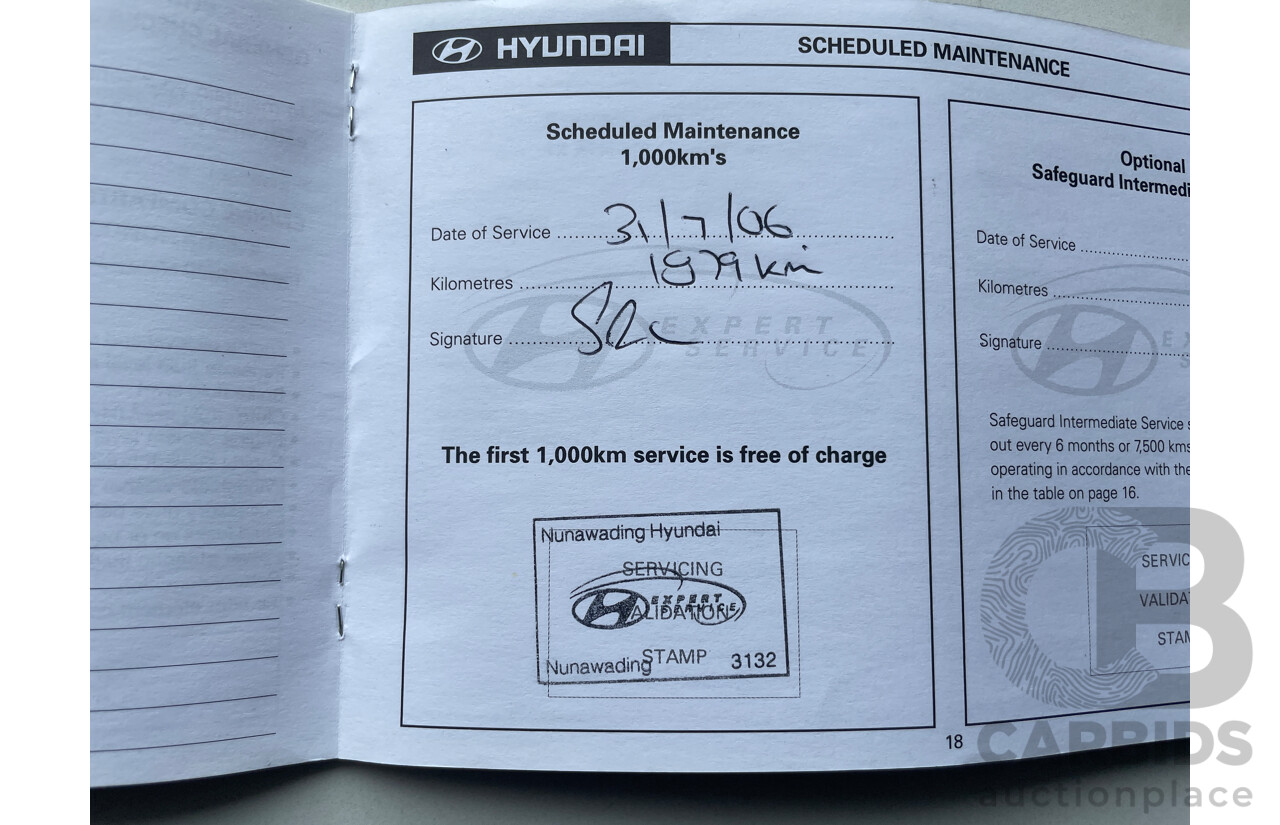 HYUNDAI
SCHEDULED MAINTENANCE
Scheduled Maintenance
1,000km's
Date of Service 31/7/06
Kilometres 1979 km
Signature
EXPERT
SERVICE
The first 1,000km service is free of charge
Nunawading Hyundai
SERVICING
EXPERT
SERVICE
VALIDATION
STAMP
Nunawading 3132
Optional
Safeguard Intermedi
Date of Service
Kilometres
Signature
Safeguard Intermediate Service
out every 6 months or 7,500 kms
operating in accordance with the
in the table on page 16.
SERVIC
VALIDA
STAM
18
CARBIDS
auctionplace